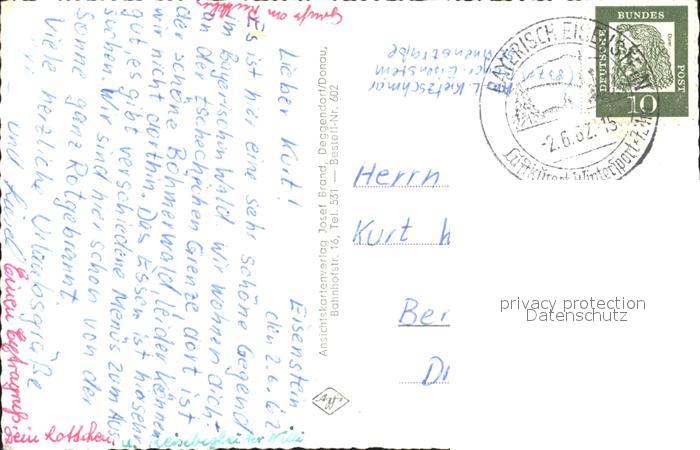 Eisenstein
den 2.6.62
Lieber Kurt!
Es ist hier eine sehr schöne Gegend
im Bayerischen Wald. Wir wohnen dicht
an der tschechischen Grenze dort ist
der schöne Böhmerwald leider können
wir nicht dorthin. Das Essen ist
gut es gibt verschiedene Menüs zum Aus
suchen. Wir sind hier schon von der
Sonne ganz Rotgebrannt.
Viele herzliche Urlaubsgrüße
und
Einen
Dein
u.
der Willi
Ansichtskartenverlag Josef Brand, Deggendorf/Donau,
Bahnhofstr. 16, Tel. 531 — Bestell-Nr. 602
L. Kretzschmar
(8371)
BAYERISCH EISENSTEIN
-2.6.62.-15
Luftkurort Wintersport
DEUTSCHE
BUNDES
POST
10
Herrn
Kurt
Ber
privacy protection
Datenschutz